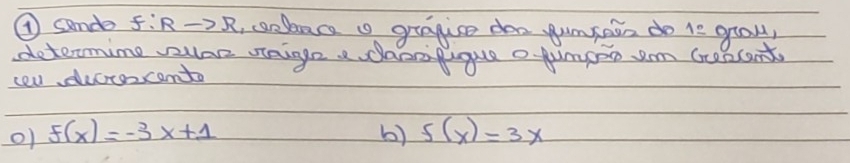 ① Sendo f:R->R, esboce o gráfico das funções do 1º grau,
determine suas raízes e classifique a função em crescente
ou decrescente
a) f(x)=-3x+1 b) f(x)=3x